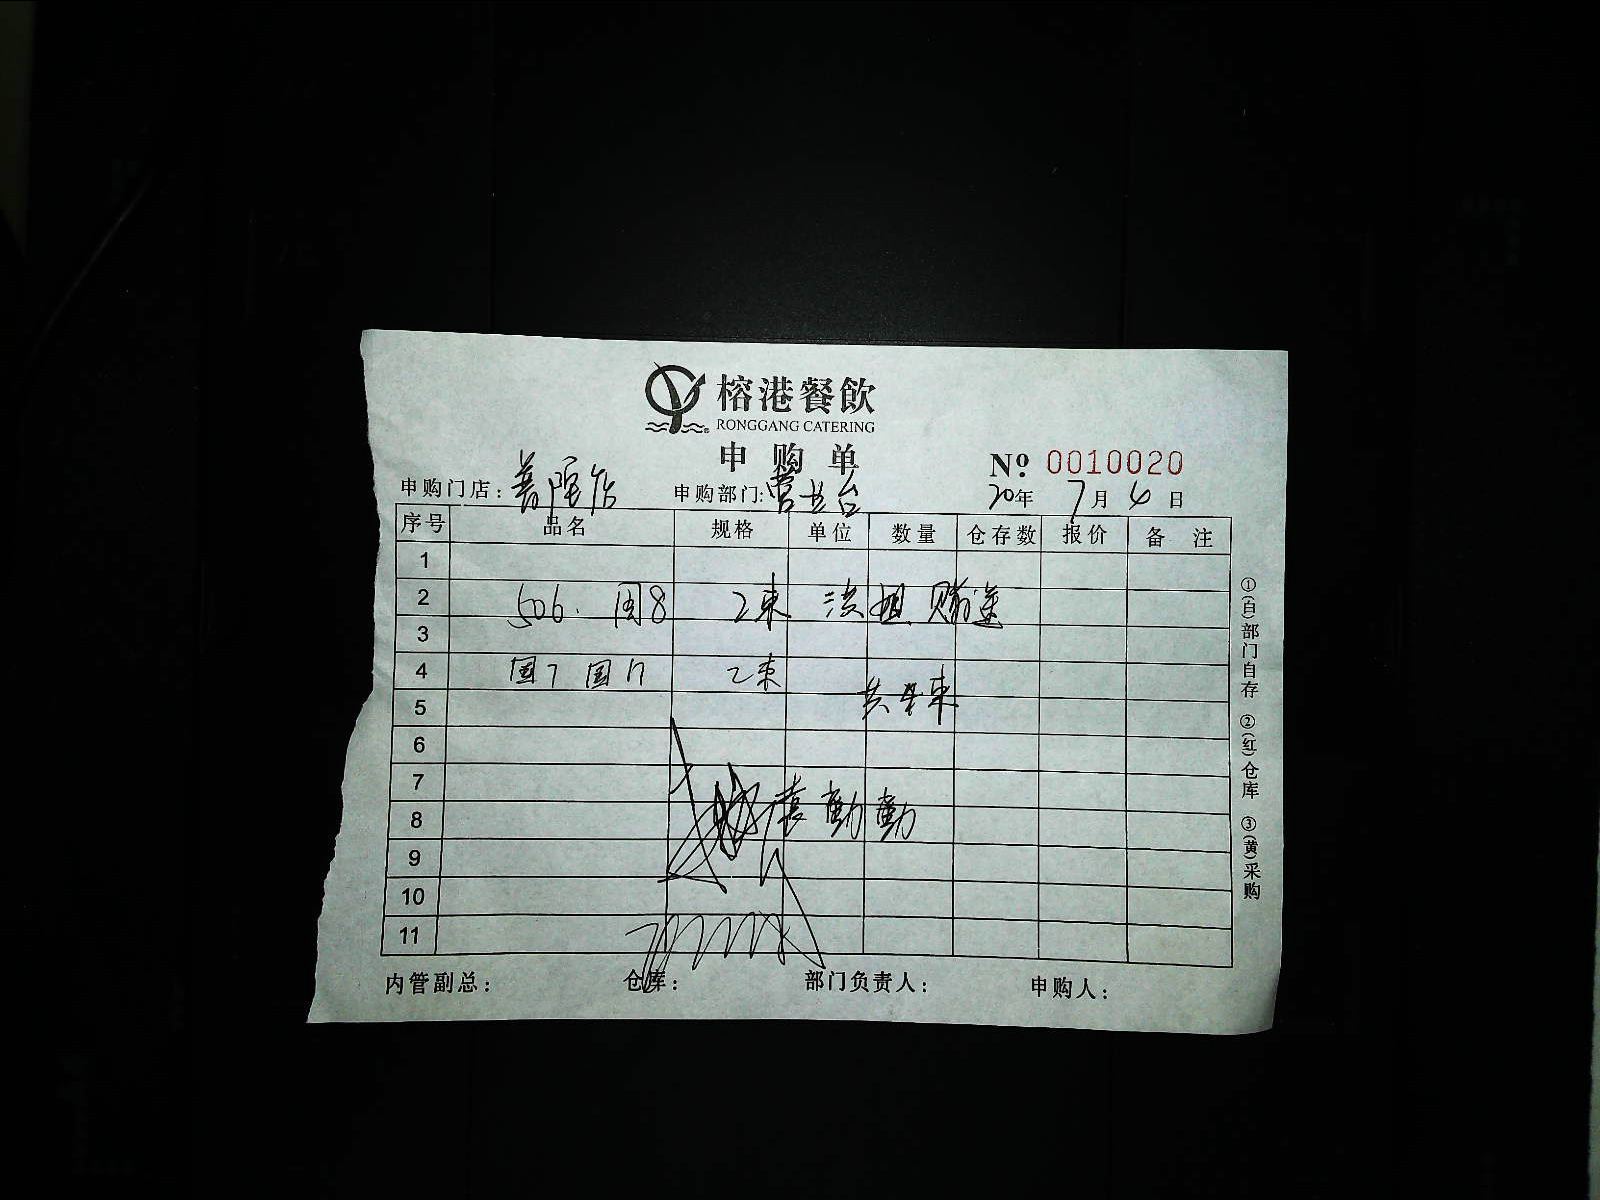 榕港餐飲
RONGGANG CATERING
申购单
№ 0010020
申购门店: 普陀店 申购部门: 营业台 20年 7月 4日
序号 品名 规格 单位 数量 仓存数 报价 备 注
1
2 506. 国8 2束 洪姐 赠送
3
4 国7 国17 2束
5 共4束
6
7
8 勤勤
9
10
11
内管副总: 仓库: 部门负责人: 申购人:
①(白)部门自存 ②(红)仓库 ③(黄)采购